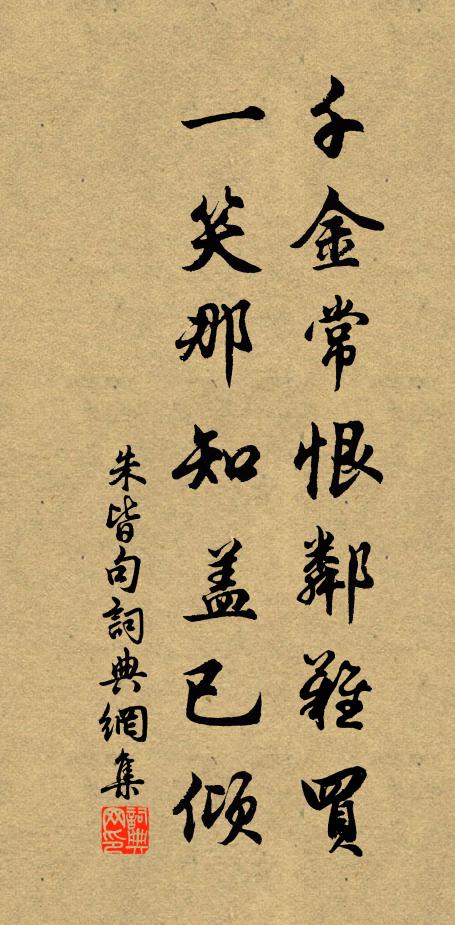 千金常恨鄰難買
一笑那知蓋已傾
朱皆句詞典網集
詞典網印